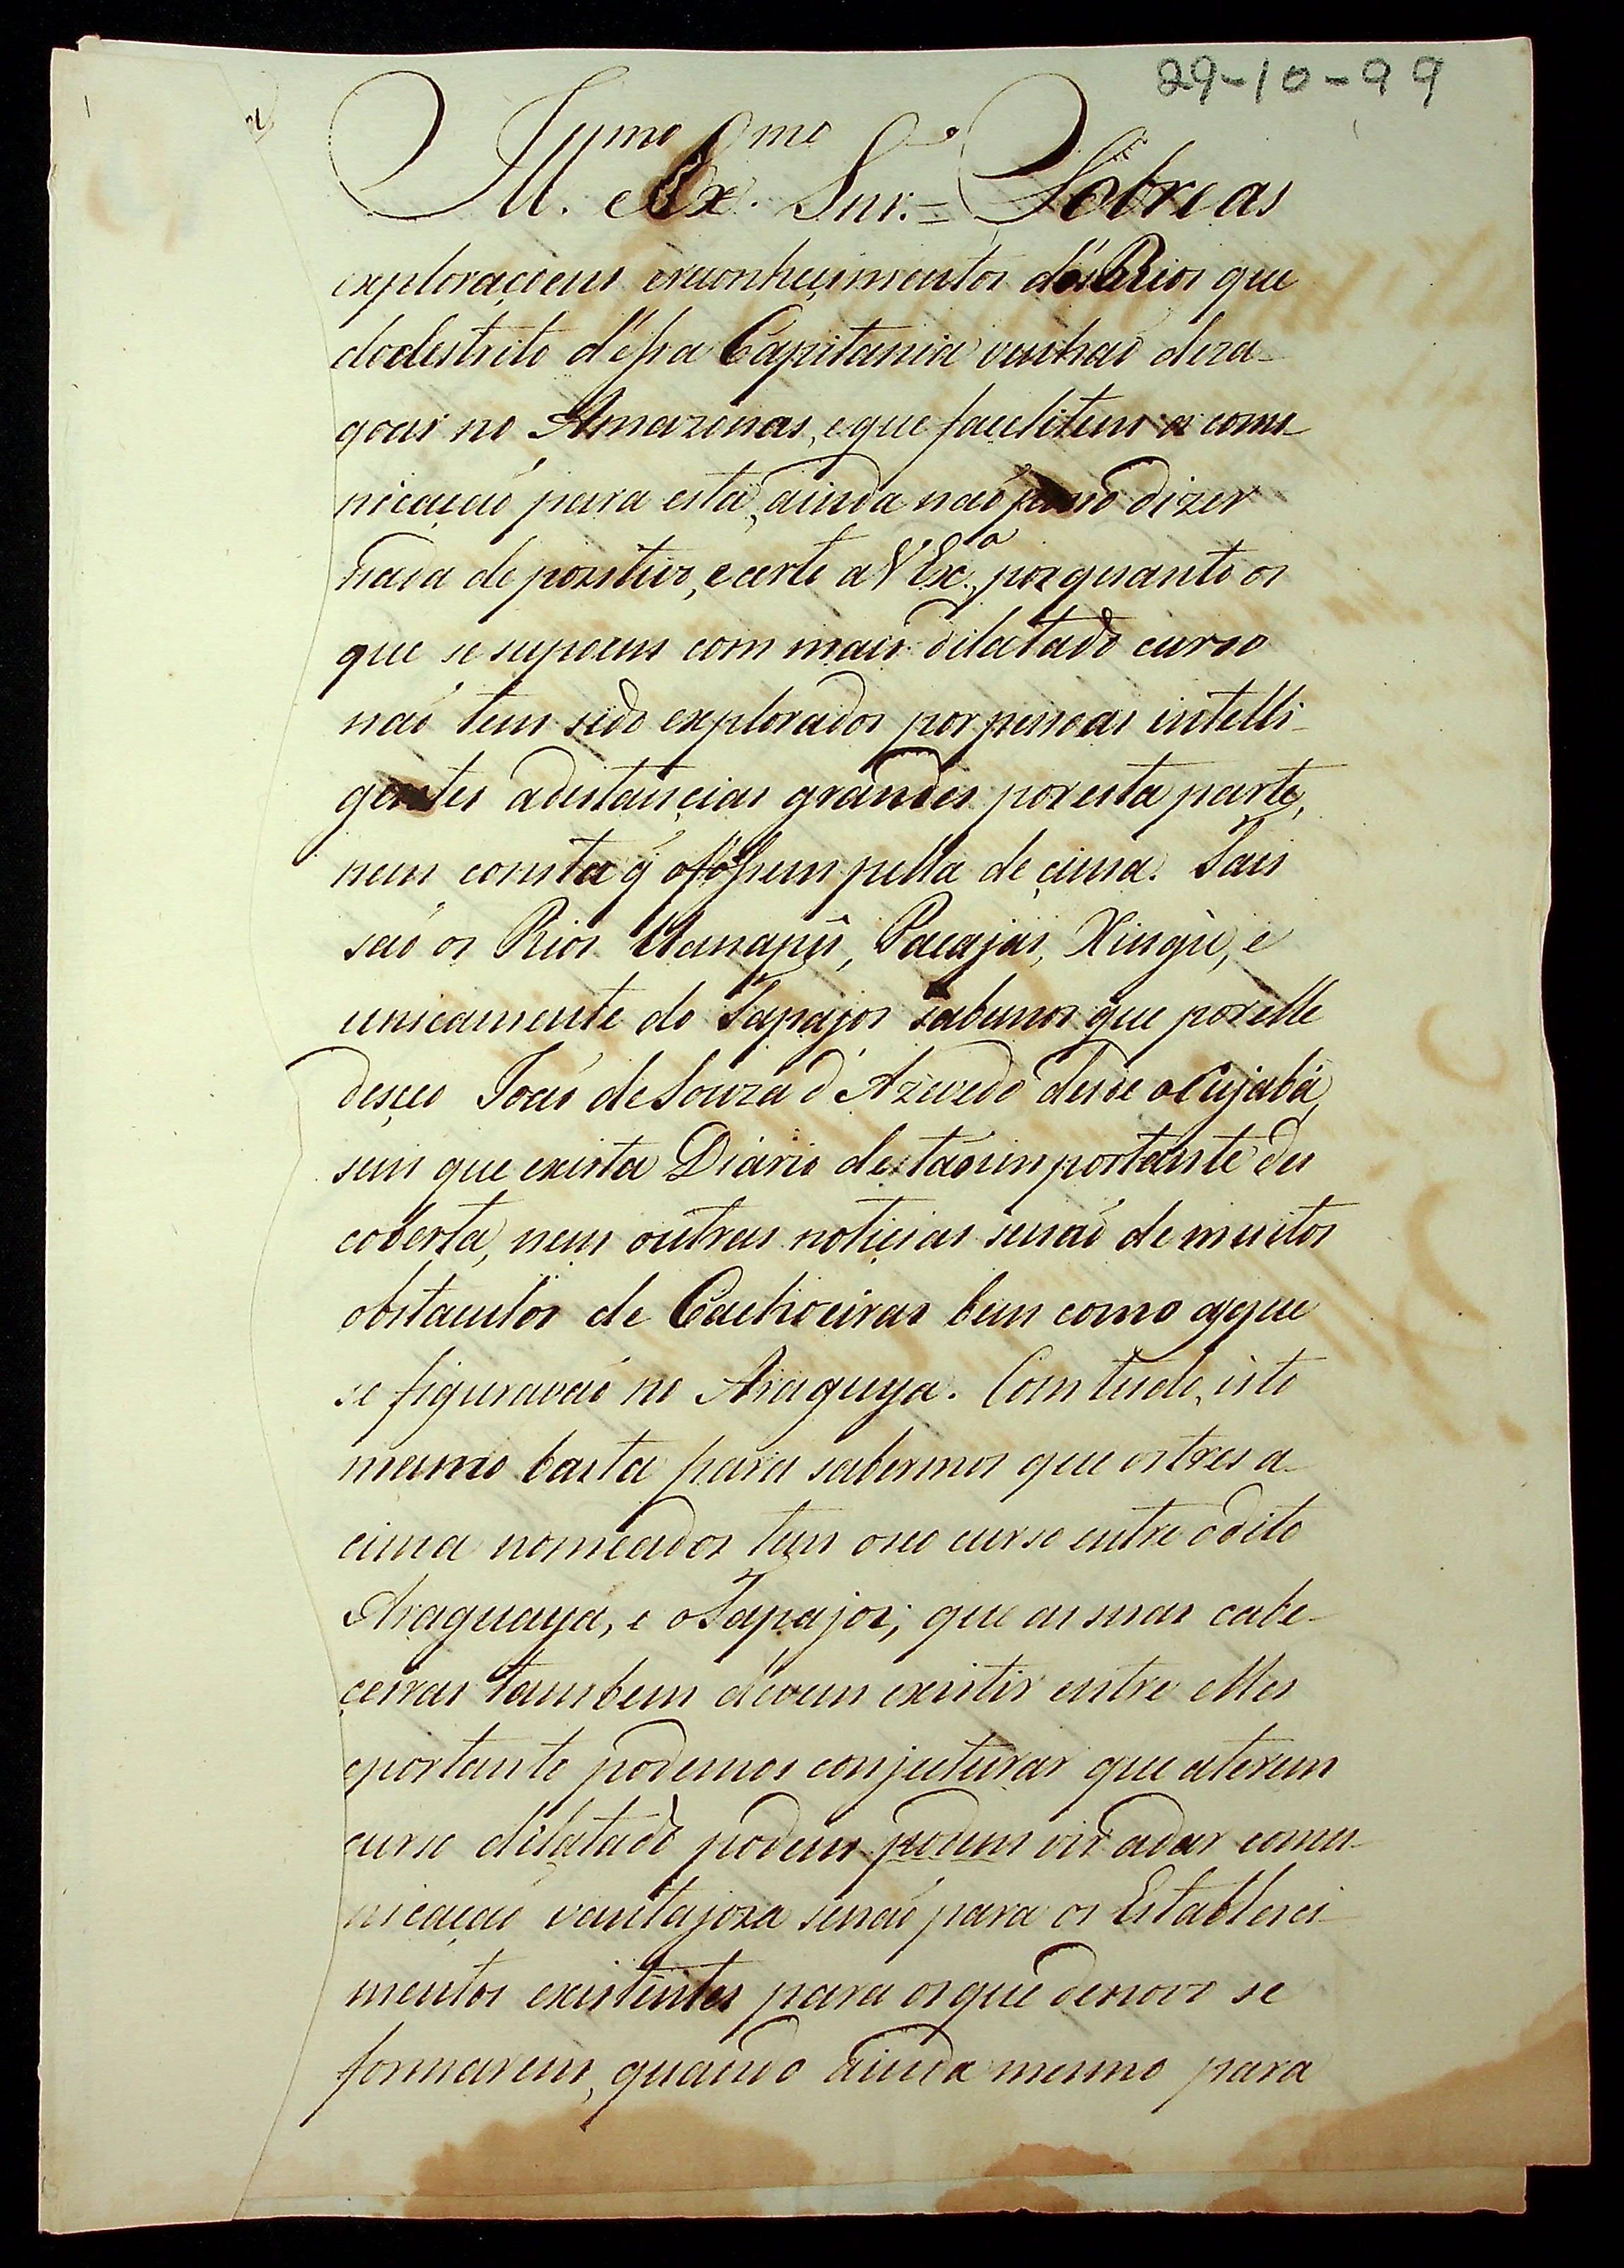 29-10-99
Ill.mo e Ex.mo Snr. = Sobre as
exploraçoens ereconhecimentos dos Rios que
dodestricto d'essa Capitania venhaõ deza-
goar no Amazonas, eque facelitem a comu-
nicaçaõ para esta, ainda naõ posso dizer
nada de pozitivo, ecerto a V Ex.a, porquanto os
que se supoem com mais dilatado curso
naõ tem sido explorados por pessoas intelli-
gentes adistancias grandes por esta parte,
nem consta q̃ ofossem pella de cima. Taes
saõ os Rios Uanapû, Pacajas, Xingù, e
unicamente do Tapajos sabemos que por elle
desceo Joaõ de Souza d'Azevedo desde o Cujabá,
sem que exista Diario destaõ importante des
coberta, nem outras noticias senaõ de muitos
obstaculos de Cachoeiras bem como as que
se figuravaõ no Araguya. Com tudo, isto
mesmo basta para sabermos que os tres a-
cima nomeados tem oseo curso entre o dito
Araguaya, e o Tapajos; que as suas cabe-
ceiras tambem devem existir entre elles
eportanto podemos conjecturar que aterem
curso dilatado podem podem vir adar comu-
nicaçaõ vantajoza senaõ para os Estableci-
mentos existentes para os que denovo se
formarem, quando ainda mesmo para